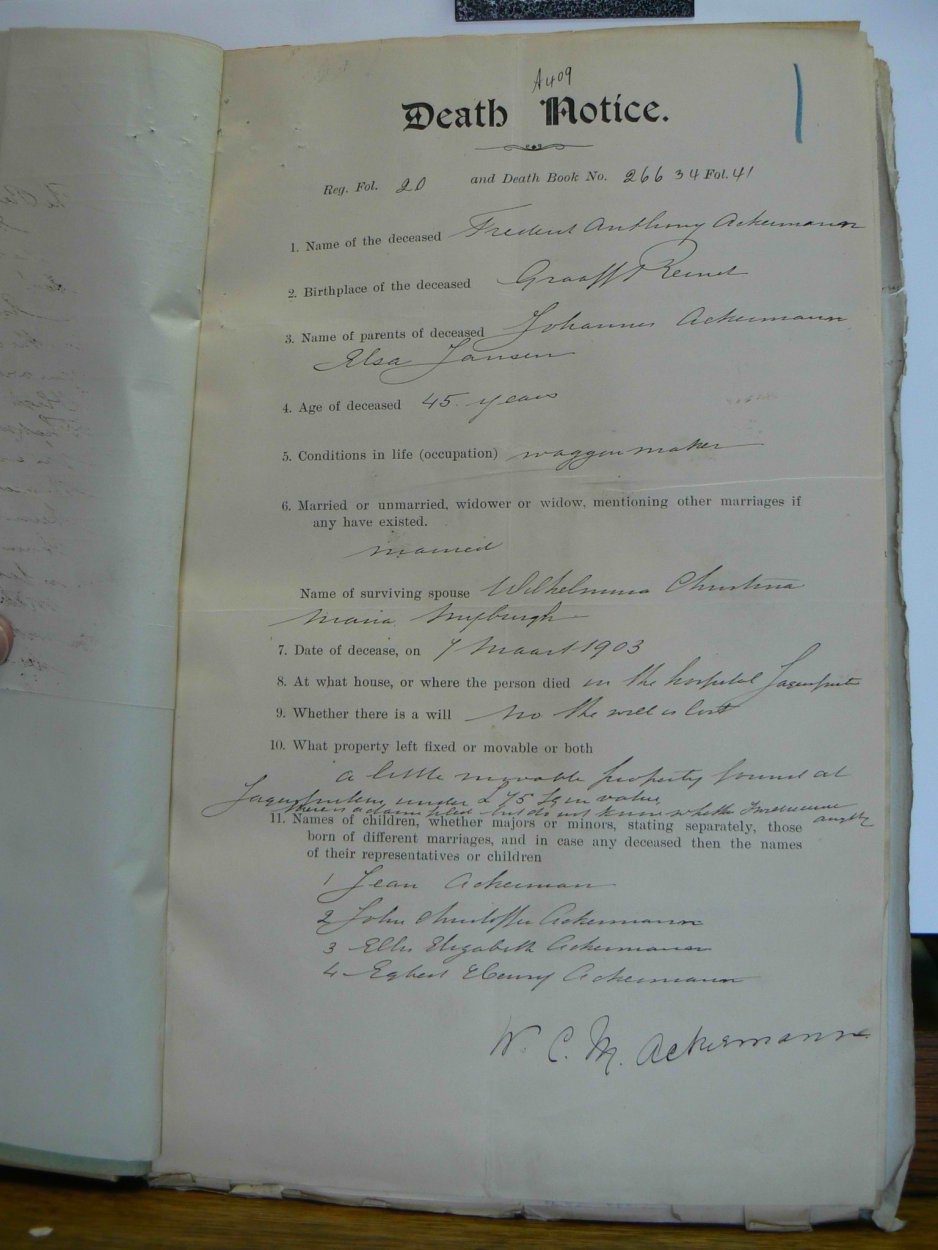 A409
Death Notice.
Reg. Fol. 20 and Death Book No. 26634 Fol. 41
1. Name of the deceased Anthony Ackermann
2. Birthplace of the deceased Graaff Reinet
3. Name of parents of deceased Johannes Ackermann
Elsa Jansen
4. Age of deceased 45 years
5. Conditions in life (occupation) waggon maker
6. Married or unmarried, widower or widow, mentioning other marriages if
any have existed.
married
Name of surviving spouse Wilhelmina Christina
Maria Myburgh
7. Date of decease, on 7 Maart 1903
8. At what house, or where the person died in the hospital
9. Whether there is a will No the will is lost
10. What property left fixed or movable or both
a little movable property found at
under £75 in value
there is a claim filed but do not know whether
11. Names of children, whether majors or minors, stating separately, those
born of different marriages, and in case any deceased then the names
of their representatives or children
1 Jean Ackerman
2 John Christoffer Ackermann
3 Elizabeth Ackermann
4 Egbert Henry Ackermann
W. C. M. Ackermann